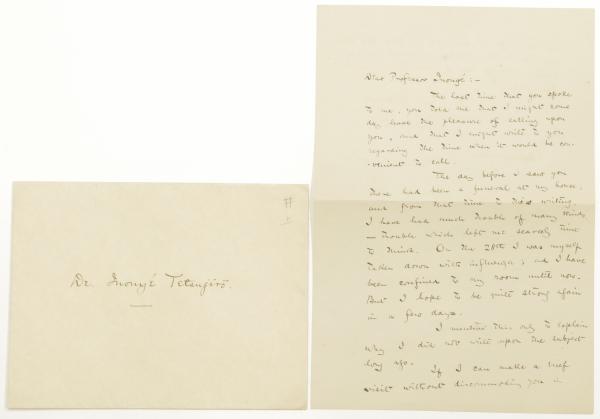 Dr. Inouyé Tetsugirō.
井
上
Dear Professor Inouyé:—
The last time that you spoke
to me, you told me that I might some
day have the pleasure of calling upon
you, and that I might write to you
regarding the time when it would be con-
-venient to call.
The day before I saw you
there had been a funeral at my house,
and from that time to this writing,
I have had much trouble of many kinds
— trouble which left me scarcely time
to think. On the 28th I was myself
taken down with influenza; and I have
been confined to my room until now.
But I hope to be quite strong again
in a few days.
I mention this only to explain
why I did not write upon the subject
long ago.
If I can make a brief
visit without discommoding you in